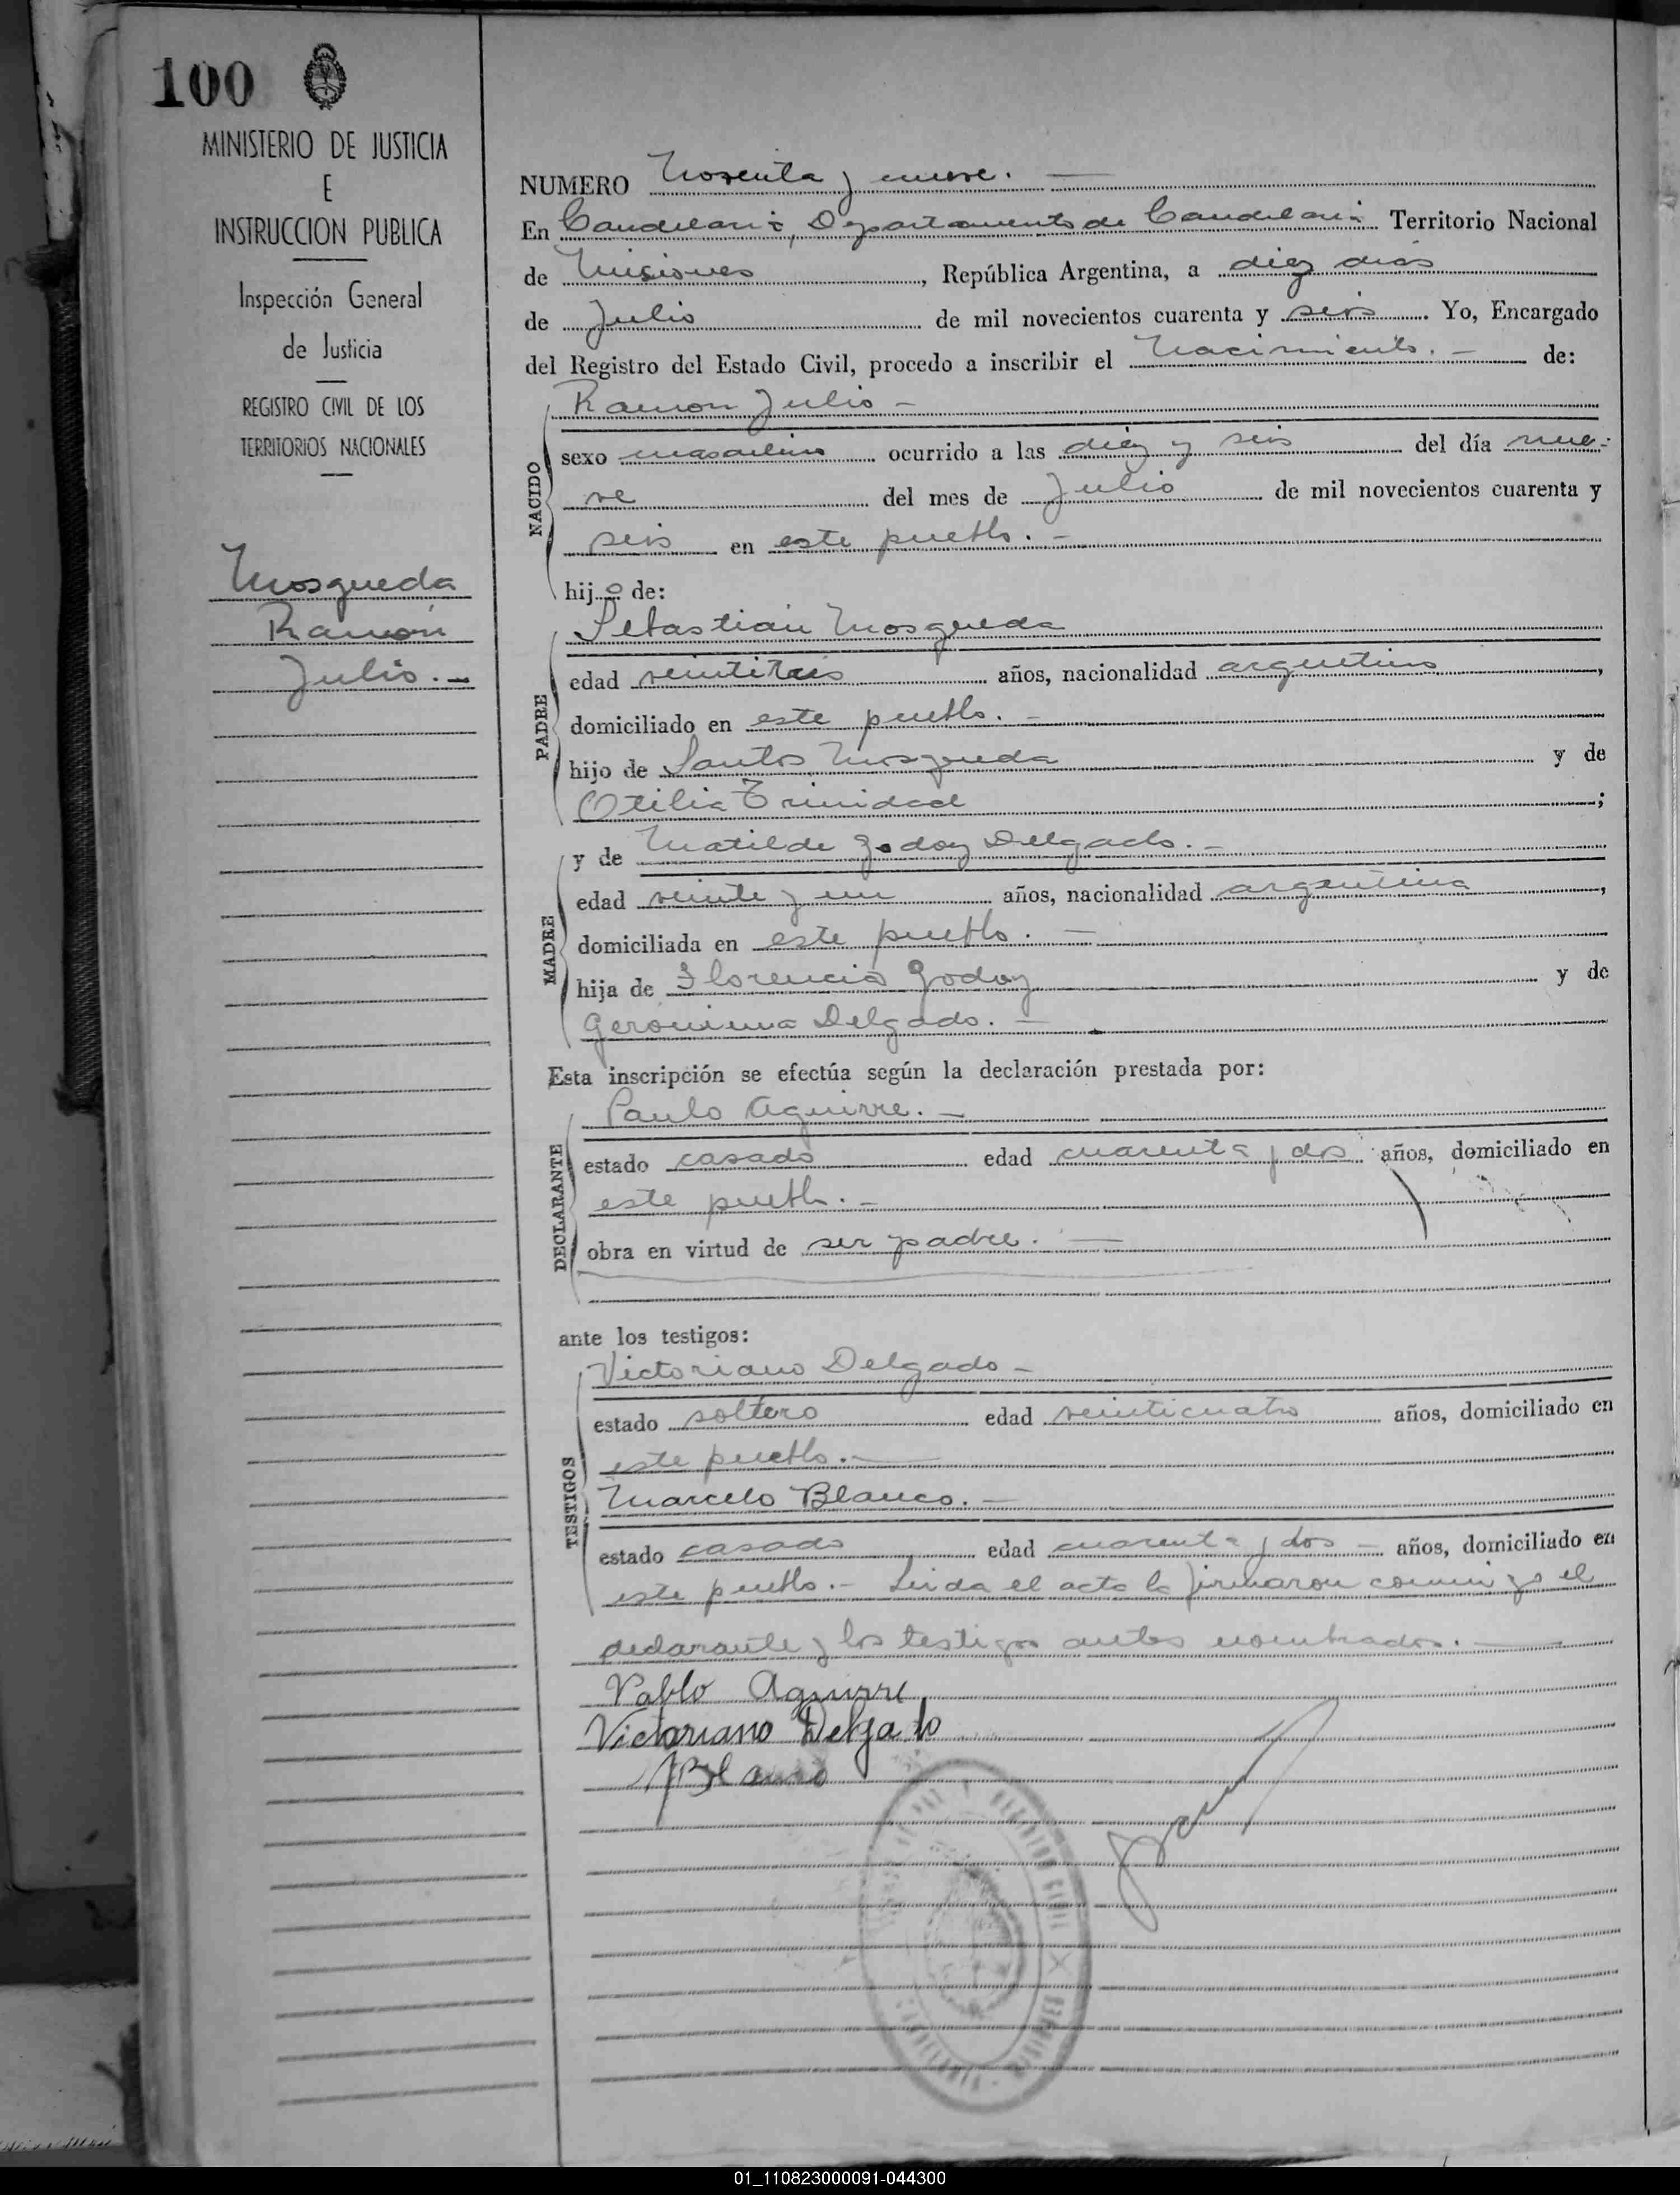 100
MINISTERIO DE JUSTICIA
E
INSTRUCCION PUBLICA
Inspección General
de Justicia
REGISTRO CIVIL DE LOS
TERRITORIOS NACIONALES
Mosqueda
Ramón
Julio.-
NUMERO Noventa y nueve.-
En Candelaria, Departamento de Candelaria Territorio Nacional
de Misiones, República Argentina, a diez dias
de Julio de mil novecientos cuarenta y seis. Yo, Encargado
del Registro del Estado Civil, procedo a inscribir el Nacimiento.- de:
NACIDO
Ramon Julio-
sexo masculino ocurrido a las diez y seis del día nue-
ve del mes de Julio de mil novecientos cuarenta y
seis en este pueblo.-
hijo de:
PADRE
Sebastian Mosqueda
edad veintitres años, nacionalidad argentino,
domiciliado en este pueblo.-
hijo de Santos Mosqueda y de
Otilia Trinidad;
MADRE
y de Matilde Godoy Delgado.-
edad veinte y un años, nacionalidad argentina,
domiciliada en este pueblo.-
hija de Florencio Godoy y de
Geronima Delgado.-
Esta inscripción se efectúa según la declaración prestada por:
DECLARANTE
Paulo Aguirre.-
estado casado edad cuarenta y dos años, domiciliado en
este pueblo.-
obra en virtud de ser padre.-
ante los testigos:
TESTIGOS
Victoriano Delgado-
estado soltero edad veinticuatro años, domiciliado en
este pueblo.-
Marcelo Blanco.-
estado casado edad cuarenta y dos- años, domiciliado en
este pueblo.- Leida el acta la firmaron conmigo el
declarante y los testigos antes nombrados.-
Pablo Aguirre
Victoriano Delgado
MBlanco
01_110823000091-044300